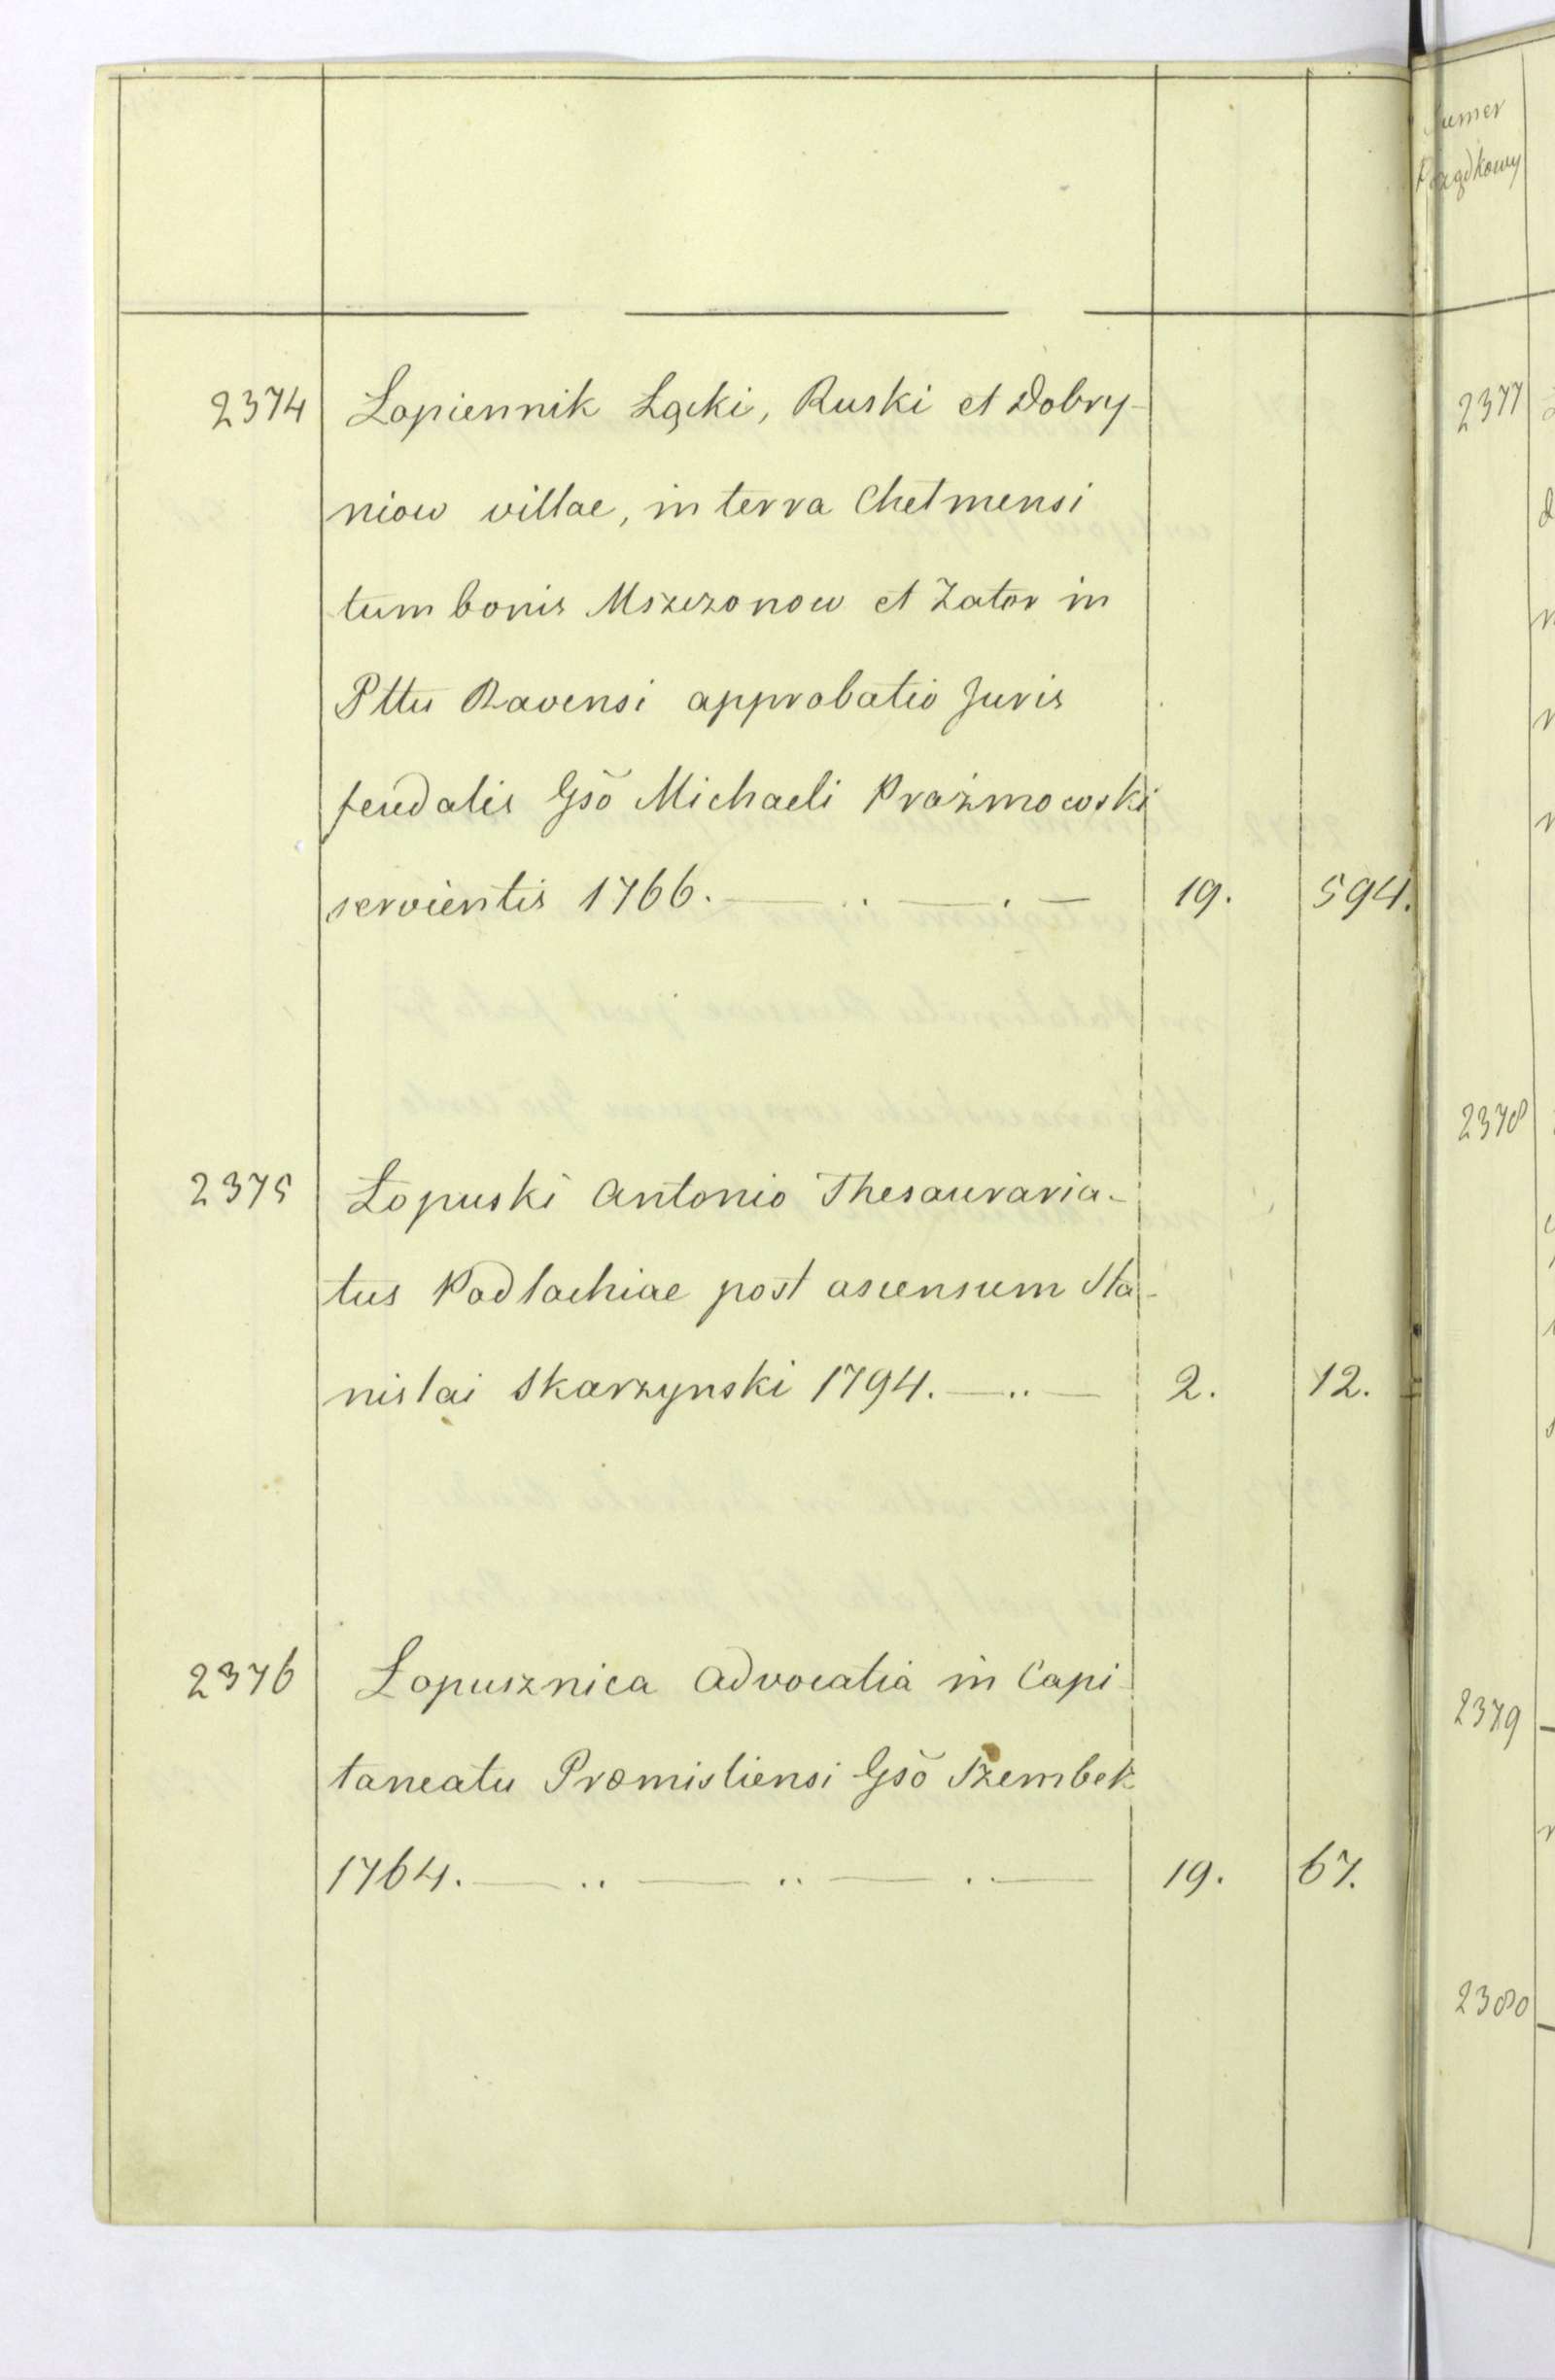 2374 Łopiennik Łącki, Ruski et Dobry-
niow villae, in terra Chełmensi
tum bonis Mszczonow et Zator in
Pttu Ravensi approbatio Juris
feudalis Gsō Michaeli Prażmowski
servientis 1766. — .. — . — 19. 594.
2375 Łopuski Antonio Thesauraria-
tus Podlachiae post ascensum Sta-
nislai Skarzynski 1794. — .. — 2. 12.
2376 Łopusznica Advocatia in Capi-
taneatu Premisliensi Gsō Szembek
1764. — .. — .. — .. — 19. 67.
Numer
Porządkowy
2377
2378
2379
2380